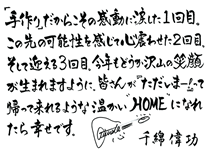 「手作り」だからこその感動に涙した1回目。
この先の可能性を感じて心震わせた2回目。
そして迎える3回目、今年もどうか沢山の笑顔
が生まれますように、皆さんが"ただしまー!"って
帰って来れるような温かい"HOME"になれ
たら幸せです。
千綿偉功